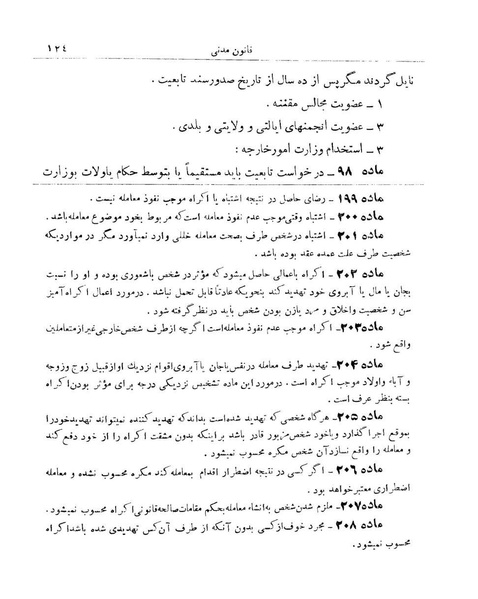 قانون مدنی
۱۲٤
نایل گردند مگر پس از ده سال از تاریخ صدور سند تابعیت .
۱ ــ عضویت مجالس مقننه .
۳ ــ عضویت انجمنهای ایالتی و ولایتی و بلدی .
۳ ــ استخدام وزارت امور خارجه :
ماده ۹۸ ــ درخواست تابعیت باید مستقیماً یا بتوسط حکام یا ولات بوزارت
ماده ۱۹۹ ــ رضای حاصل در نتیجه اشتباه یا اکراه موجب نفوذ معامله نیست .
ماده ۲۰۰ ــ اشتباه وقتی موجب عدم نفوذ معامله است که مربوط بخود موضوع معامله باشد .
ماده ۲۰۱ ــ اشتباه در شخص طرف بصحت معامله خللی وارد نمیآورد مگر در مواردیکه
شخصیت طرف علت عمده عقد بوده باشد .
ماده ۲۰۲ ــ اکراه باعمالی حاصل میشود که مؤثر در شخص باشعوری بوده و او را نسبت
بجان یا مال یا آبروی خود تهدید کند بنحویکه عادتاً قابل تحمل نباشد . در مورد اعمال اکراه آمیز
سن و شخصیت و اخلاق و مرد یا زن بودن شخص باید در نظر گرفته شود .
ماده ۲۰۳ ــ اکراه موجب عدم نفوذ معامله است اگرچه از طرف شخص خارجی غیر از متعاملین
واقع شود .
ماده ۲۰۴ ــ تهدید طرف معامله در نفس یا جان یا آبروی اقوام نزدیك او از قبیل زوج و زوجه
و آباء و اولاد موجب اکراه است . در مورد این ماده تشخیص نزدیکی درجه برای مؤثر بودن اکراه
بسته بنظر عرف است .
ماده ۲۰۵ ــ هرگاه شخصی که تهدید شده است بداند که تهدید کننده نمیتواند تهدید خود را
بموقع اجرا گذارد و یا خود شخص مزبور قادر باشد بر اینکه بدون مشقت اکراه را از خود دفع کند
و معامله را واقع نسازد آن شخص مکره محسوب نمیشود .
ماده ۲۰۶ ــ اگر کسی در نتیجه اضطرار اقدام بمعامله کند مکره محسوب نشده و معامله
اضطراری معتبر خواهد بود .
ماده ۲۰۷ ــ ملزم شدن شخص به انشاء معامله بحکم مقامات صالحه قانونی اکراه محسوب نمیشود .
ماده ۲۰۸ ــ مجرد خوف از کسی بدون آنکه از طرف آن کس تهدیدی شده باشد اکراه
محسوب نمیشود .